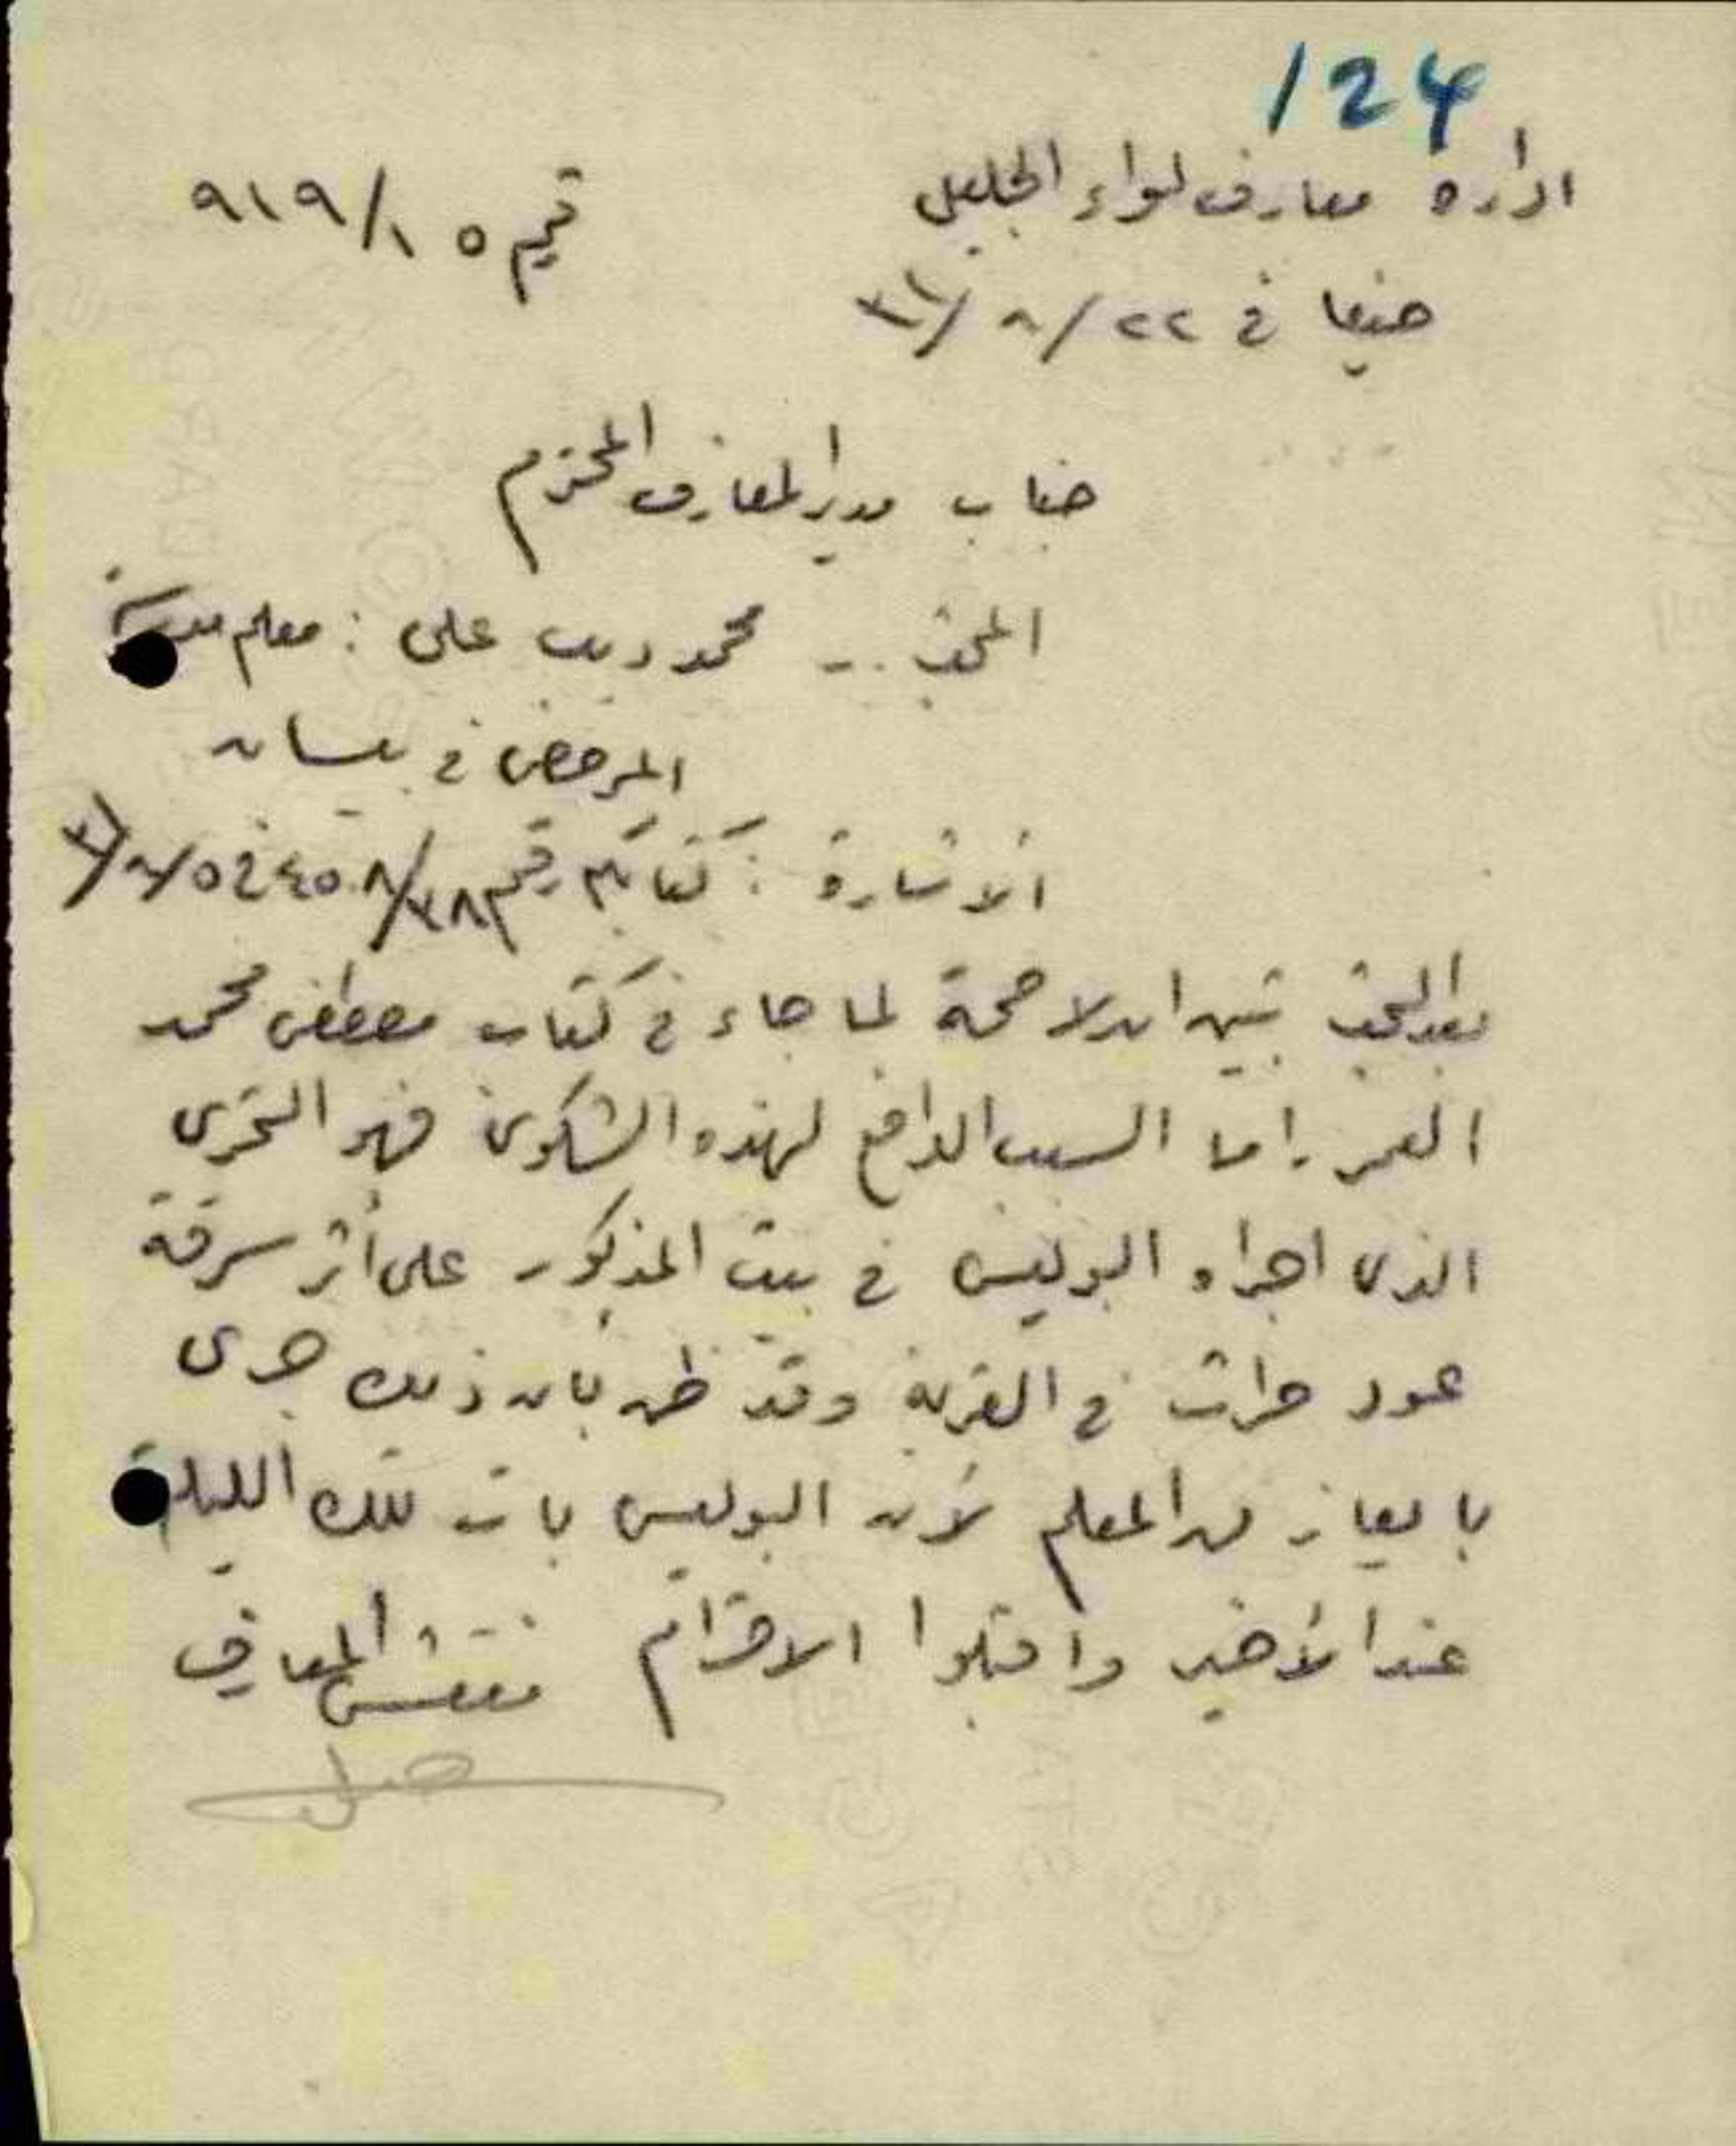 124
ادارة معارف لواء الجليل
رقم ٩١٩/١٥
حيفا في ٢٢/٨/٣١
جناب مدير المعارف المحترم
المبحث .. محمد ديب علي : معلم مدرسة
المرصص في بيسان
الاشارة : كتابكم رقم
بعد البحث تبين ان لا صحة لما جاء في كتاب مصطفى محمد
العمر. اما السبب الدافع لهذه الشكوى فهو التحري
الذي اجراه البوليس في بيت المذكور على أثر سرقة
عود حراث في القرية وقد ظن بان ذلك جرى
بايعاز من المعلم لأن البوليس بات تلك الليلة
عند الأخير واقبلوا الاحترام مفتش المعارف